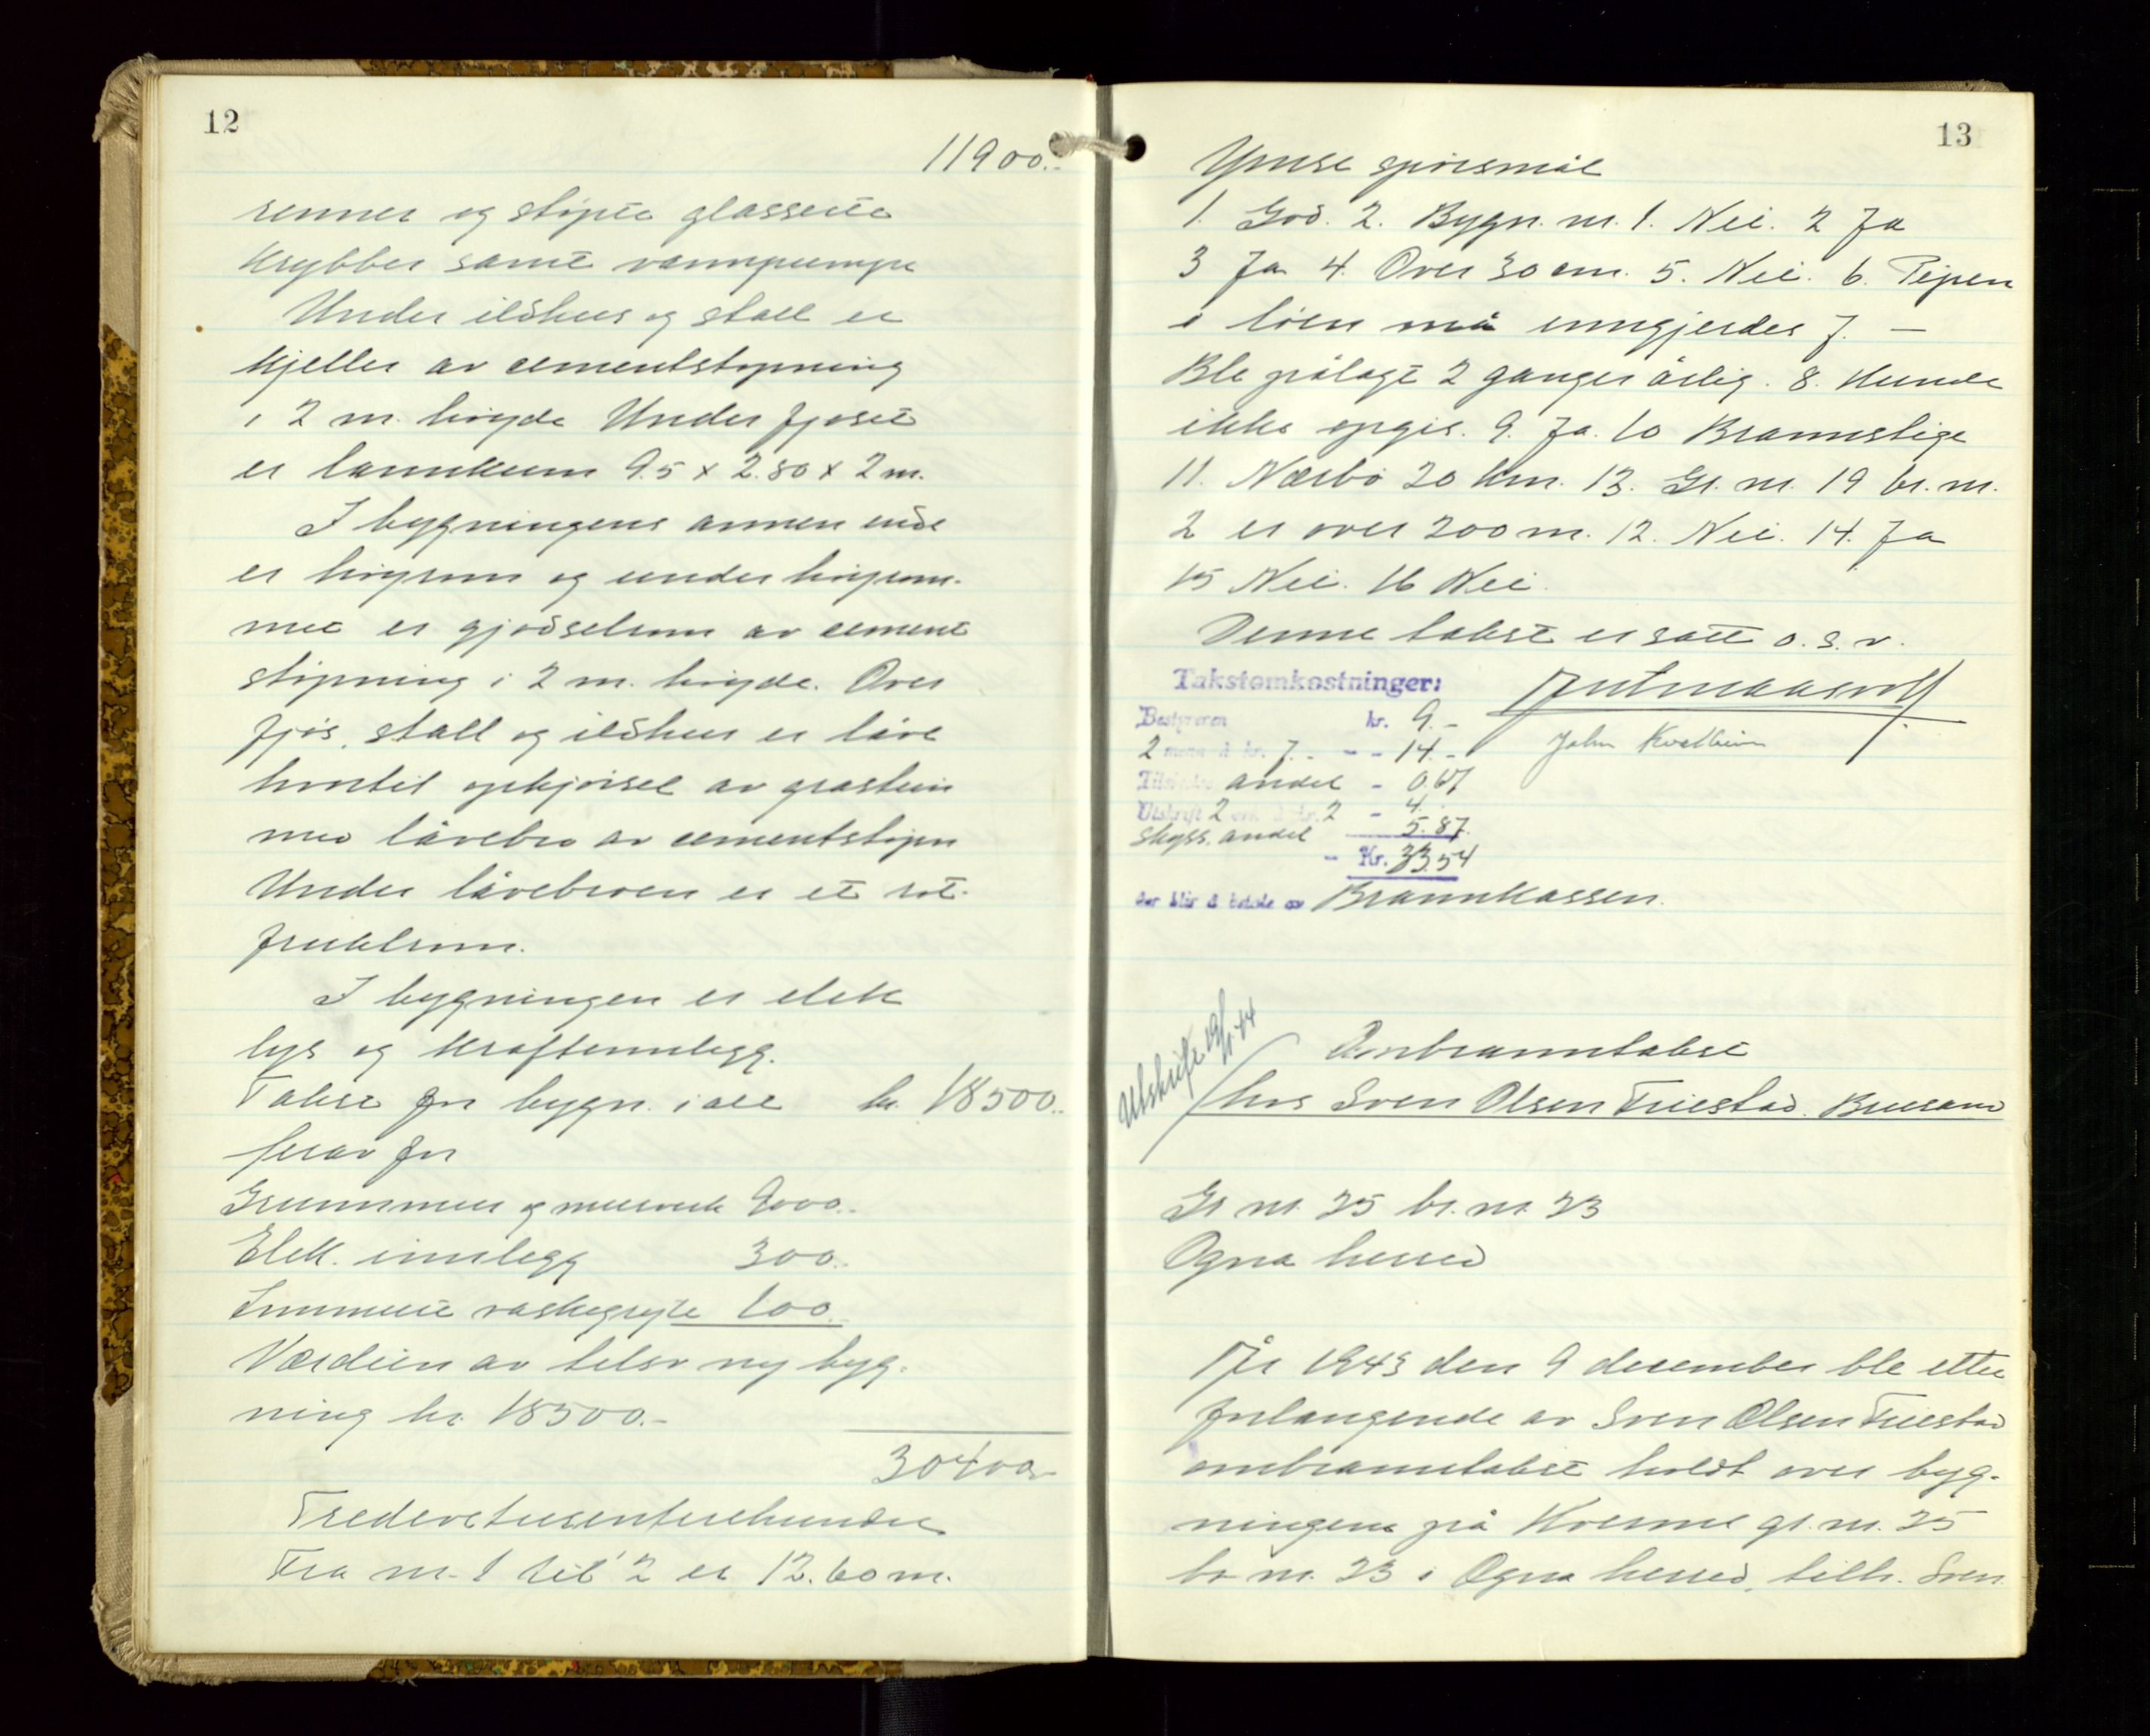 12
11900.-
renner og støpte glasserte
krybber samt vannpumpe
Under ildhus og stall er
kjeller av cementstøpning
i 2 m. høyde Under fjøset
er lannkum 9.5 x 2.80 x 2 m.
I bygningens annen ende
er høyrum og under høyrum-
met er gjødselrum av cement
støpning i 2 m. høyde. Over
fjøs, stall og ildhus er låve
hvortil opkjørsel av gråstein
med låvebro av cementstøpn
Under låvebroen er et rot-
fruktrum.
I bygningen er elek
lys og kraftinnlegg.
Takst for bygn. i alt kr. 18500.-
herav for
Grunnmur og murverk 9000.-
Elek. innlegg 300.-
Innmurt vaskegryte 100.-
Verdien av tilsv ny byg-
ning kr. 18500.-
30400.-
Tredevetusenfirehundre
Fra nr. 1 til 2 er 12.60 m.
13
Ymse spørsmål
1. God. 2. Bygn. nr. 1. Nei. 2 Ja
3 Ja 4. Over 30 cm. 5. Nei. 6. Pipen
i løen må inngjerdes 7. —
Ble pålagt 2 ganger årlig. 8. Kunde
ikke opgis. 9. Ja. 10 Brannstige
11. Nærbø 20 km. 13. Gr. nr. 19 br. nr.
2 er over 200 m. 12. Nei. 14. Ja
15 Nei. 16 Nei.
Denne takst er satt o. s. v.
Takstomkostninger:
Bestyreren kr. 9.-
John Kvalheim
2 menn à kr. 7.- - - 14.-
andel - 0.67
Utskrift 2 à kr. 2 - 4.-
skyss. andel 5.87.
- Kr. 33.54
der blir å betale av Brannkassen.
Utskrift 19/1-44
Ombranntakst
hos Sven Olsen Tuestad. Brusand
Gr nr. 25 br. nr. 23
Ogna herred
År 1943 den 9 desember ble etter
forlangende av Sven Olsen Tuestad
ombranntakst holdt over byg-
ningene på Kvernne gr. nr. 25
br nr. 23 i Ogna herred, tilh. Sven